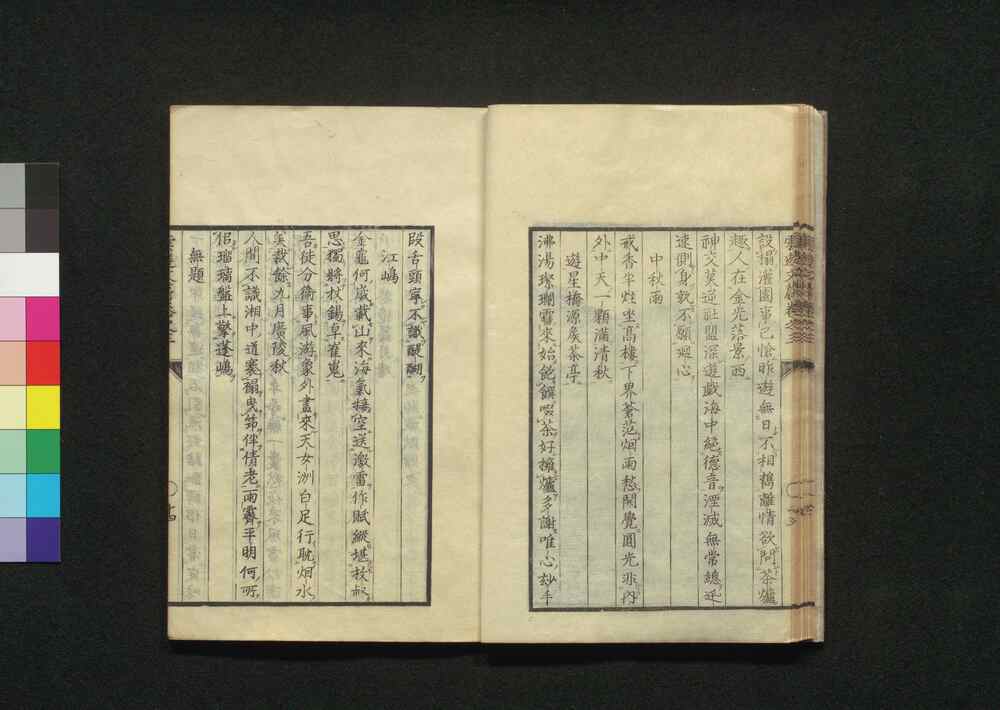 設禍灌園事已愴昨遊無日不相携離情欲問茶爐
趣人在金光落景西
神交莫逆社盟深遊戲海中絕德音湮滅無常總逆
速側身孰不願迴心
中秋雨
戒香半炷坐高樓下界蒼茫烟雨愁閑覺圓光非內
外中天一顆滿清秋
遊星橋源虞茶亭
沸湯璨瓓雪來始飽饌啜茶好擁爐多謝唯心妙手
段舌頭寧不識醍醐
江嶋
金龜何歲戴山來海氣摶空送激雷作賦縱堪枚叔
思獨將杖錫卓崔嵬
吾徒分衛事風游象外畫來天女洲白足行耽烟水
美裁餘九月廣陵秋
人間不識湘中道裹禍曳筇伴倩老雨霽平明何所
侶瑠璃盤上擎蓬嶋
無題